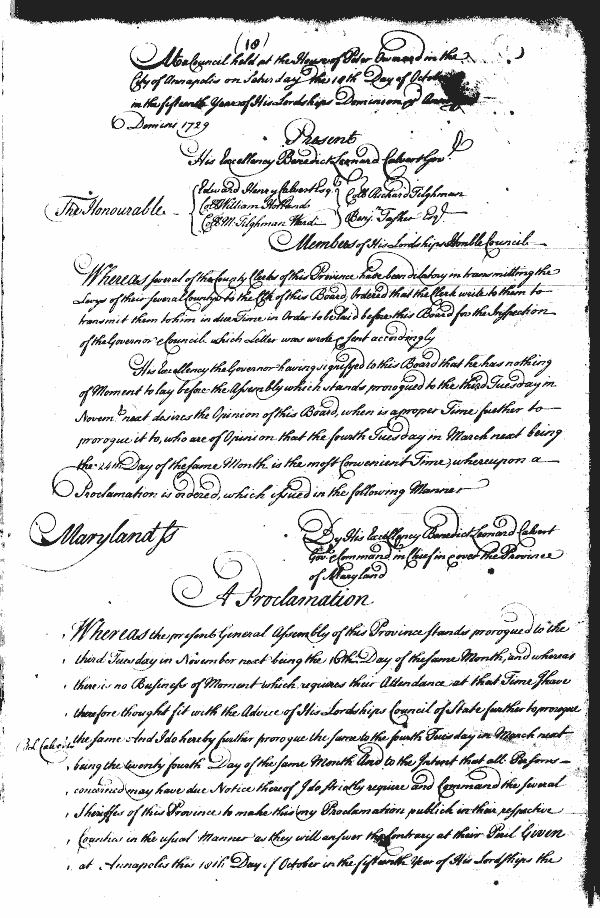 (18)
At a Council held at the House of Peter Overard in the
City of Annapolis on Saturday the 18th Day of October
in the fifteenth Year of His Lordships Dominion &c Anno
Domini 1729
Present
His Excellency Benedict Leonard Calvert Govr.
The Honourable
Edward Henry Calvert Esqr.
Coll William Holland
Coll M. Tilghman Ward
Coll Richard Tilghman
Benj.a Tasker Esqr.
Members of His Lordships Honble Council
Whereas several of the County Clerks of this Province have been dilatory in transmitting the
Levys of their several Countys to the Clk of this Board, Ordered that the Clerk write to them to
transmit them to him in due Time in Order to be laid before this Board for the Inspection
of the Governor & Council. which Letter was wrote & sent accordingly
His Excellency the Governor having signifyed to this Board that he has nothing
of Moment to lay before the Assembly which stands prorogued to the third Tuesday in
Novemr. next desires the Opinion of this Board, when is a proper Time further to
prorogue it to, who are of Opinion that the fourth Tuesday in March next being
the 24th Day of the same Month is the most Convenient Time; whereupon a
Proclamation is ordered, which issued in the following Manner
Maryland ss
By His Excellency Benedict Leonard Calvert
Govr. & Command.r in Chief in & over the Province
of Maryland
A Proclamation
Whereas the present General Assembly of this Province stands prorogued to the
third Tuesday in November next being the 18th Day of the same Month, and whereas
there is no Business of Moment which requires their Attendance at that Time I have
therefore thought fit with the Advise of His Lordships Council of State further to prorogue
the same And I do hereby further prorogue the same to the fourth Tuesday in March next
being the twenty fourth Day of the same Month And to the Intent that all Persons
concerned may have due Notice thereof I do strictly require and Command the several
Sheriffes of this Province to make this my Proclamation publick in their respective
Counties in the usual Manner as they will answer the Contrary at their Peril Given
at Annapolis this 18th Day of October in the fifteenth Year of His Lordships the